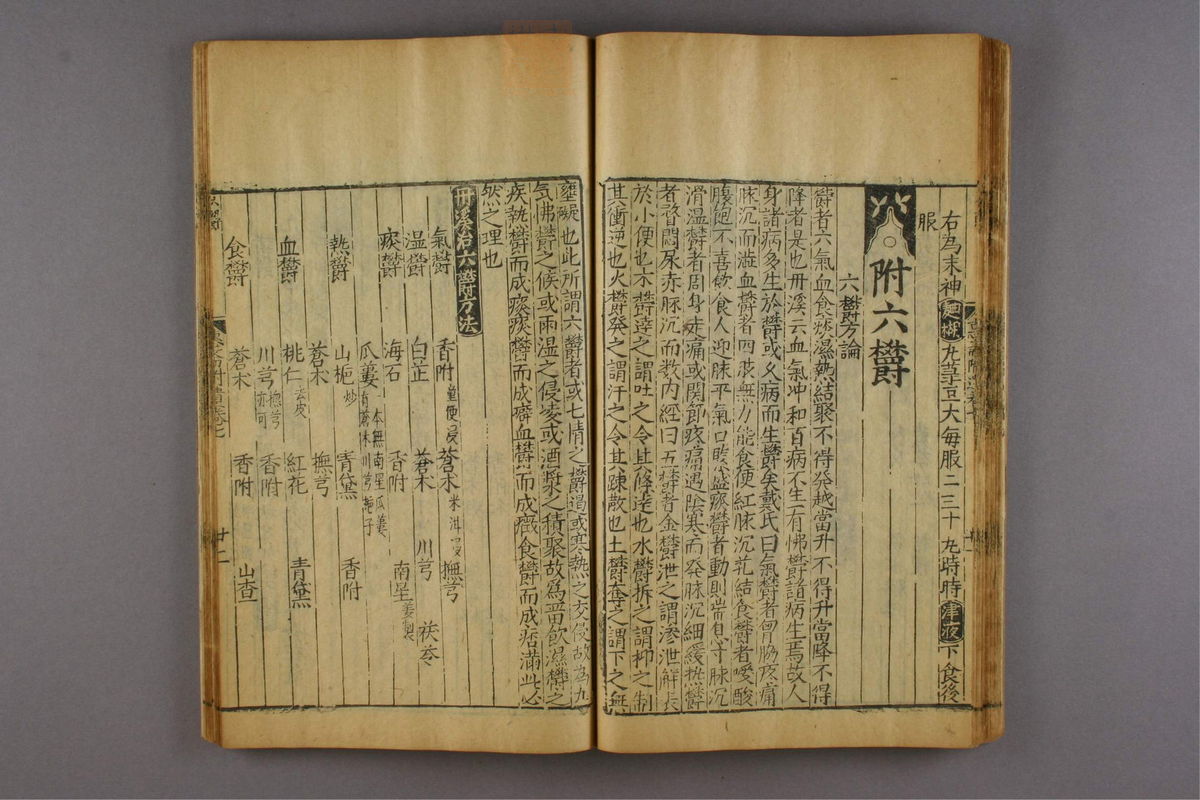 右為末神麯糊丸菉豆大每服二三十丸時時津液下食後
服
附六鬱
六鬱方論
鬱者六氣血食痰濕熱結聚不得發越當升不得升當降不得
降者是也丹溪云血氣冲和百病不生一有怫鬱諸病生焉故人
身諸病多生於鬱或久病而生鬱矣戴氏曰氣鬱者胃脇疼痛
脉沉而澁血鬱者四肢無力能食便紅脉沉芤結食鬱者噯酸
腹飽不喜飲食人迎脉平氣口脉盛痰鬱者動則喘息寸脉沉
滑溫鬱者周身走痛或関節疼痛遇陰寒而發脉沉細緩熱鬱
者瞀悶尿赤脉沉而数内經曰五鬱者金鬱泄之謂滲泄解表
於小便也木鬱逹之謂吐之令其條逹也水鬱折之謂抑之制
其衝逆也火鬱發之謂汗之令其疎散也土鬱奪之謂下之無
壅礙也此所謂六鬱者或七情之鬱遏或寒熱之交侵故為九
气怫鬱之候或雨湿之侵凌或酒漿之積聚故為畱飲濕鬱之
疾熱鬱而成痰痰鬱而成癖血鬱而成癥食鬱而成痞滿此必
然之理也
丹溪治六鬱方法
氣鬱 香附童便浸 蒼朮米泔浸 撫芎
湿鬱 白芷 蒼朮 川芎 茯苓
痰鬱 海石 香附 南星姜製
瓜蔞一本無南星瓜蔞有蒼朮川芎梔子
熱鬱 山梔炒 青黛 香附
蒼朮 撫芎
血鬱 桃仁去皮 紅花 青黛
川芎撫芎亦可 香附
食鬱 蒼朮 香附 山查
廿二